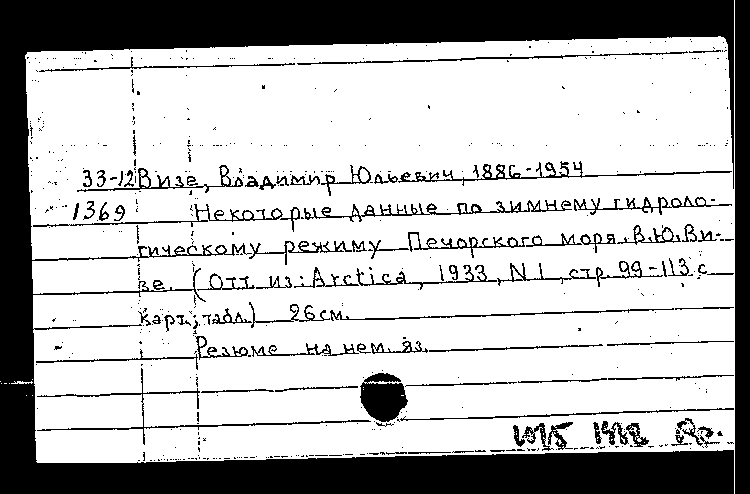 33-12 Визе, Владимир Юльевич, 1886-1954
1369 Некоторые данные по зимнему гидроло-
гическому режиму Печорского моря. В.Ю. Ви-
зе. (Отт. из: Arctica, 1933, N 1, стр. 99-113 с
карт., табл.) 26 см.
Резюме на нем. яз.